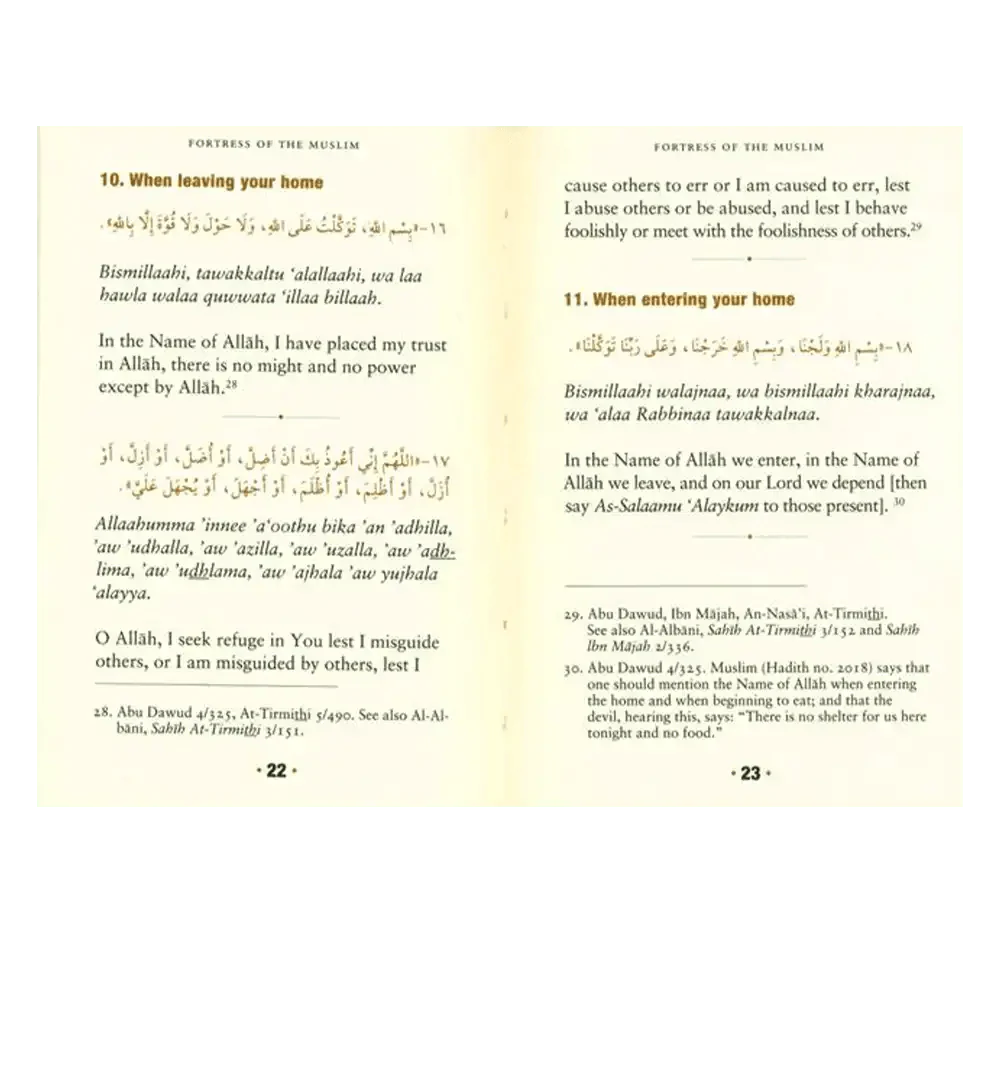 FORTRESS OF THE MUSLIM
10. When leaving your home
١٦-«بِسْمِ اللهِ، تَوَكَّلْتُ عَلَى اللهِ، وَلَا حَوْلَ وَلَا قُوَّةَ إِلَّا بِاللهِ».
Bismillaahi, tawakkaltu ‘alallaahi, wa laa
hawla walaa quwwata ‘illaa billaah.
In the Name of Allāh, I have placed my trust
in Allāh, there is no might and no power
except by Allāh.28
١٧-«اللَّهُمَّ إِنِّي أَعُوذُ بِكَ أَنْ أَضِلَّ، أَوْ أُضَلَّ، أَوْ أَزِلَّ، أَوْ
أُزَلَّ، أَوْ أَظْلِمَ، أَوْ أُظْلَمَ، أَوْ أَجْهَلَ، أَوْ يُجْهَلَ عَلَيَّ».
Allaahumma ’innee ’a‘oothu bika ’an ’adhilla,
’aw ’udhalla, ’aw ’azilla, ’aw ’uzalla, ’aw ’adh-
lima, ’aw ’udhlama, ’aw ’ajhala ’aw yujhala
‘alayya.
O Allāh, I seek refuge in You lest I misguide
others, or I am misguided by others, lest I
28. Abu Dawud 4/325, At-Tirmithi 5/490. See also Al-Al-
bāni, Sahīh At-Tirmithi 3/151.
· 22 ·
FORTRESS OF THE MUSLIM
cause others to err or I am caused to err, lest
I abuse others or be abused, and lest I behave
foolishly or meet with the foolishness of others.29
11. When entering your home
١٨-«بِسْمِ اللهِ وَلَجْنَا، وَبِسْمِ اللهِ خَرَجْنَا، وَعَلَى رَبِّنَا تَوَكَّلْنَا».
Bismillaahi walajnaa, wa bismillaahi kharajnaa,
wa ‘alaa Rabbinaa tawakkalnaa.
In the Name of Allāh we enter, in the Name of
Allāh we leave, and on our Lord we depend [then
say As-Salaamu ‘Alaykum to those present]. 30
29. Abu Dawud, Ibn Mājah, An-Nasā’i, At-Tirmithi.
See also Al-Albāni, Sahīh At-Tirmithi 3/152 and Sahīh
Ibn Mājah 2/336.
30. Abu Dawud 4/325. Muslim (Hadith no. 2018) says that
one should mention the Name of Allāh when entering
the home and when beginning to eat; and that the
devil, hearing this, says: “There is no shelter for us here
tonight and no food.”
· 23 ·